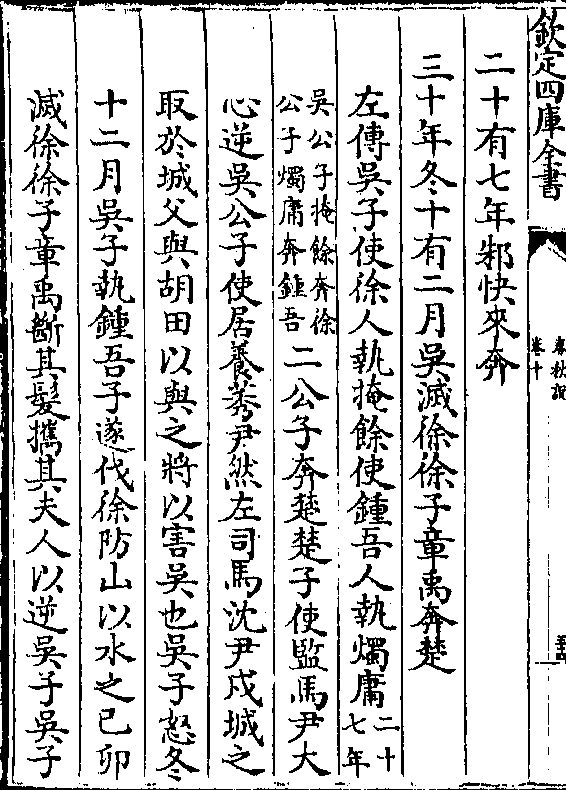 欽定四庫全書
春秋說
卷十
二十有七年邾快來奔
三十年冬十有二月吳滅徐徐子章禹奔楚
左傳吳子使徐人執掩餘使鍾吾人執燭庸二十七年
吳公子掩餘奔徐公子燭庸奔鍾吾二公子奔楚楚子使監馬尹大
心逆吳公子使居養莠尹然左司馬沈尹戍城之
取於城父與胡田以與之將以害吳也吳子怒冬
十二月吳子執鍾吾子遂伐徐防山以水之己卯
滅徐徐子章禹斷其髮攜其夫人以逆吳子吳子